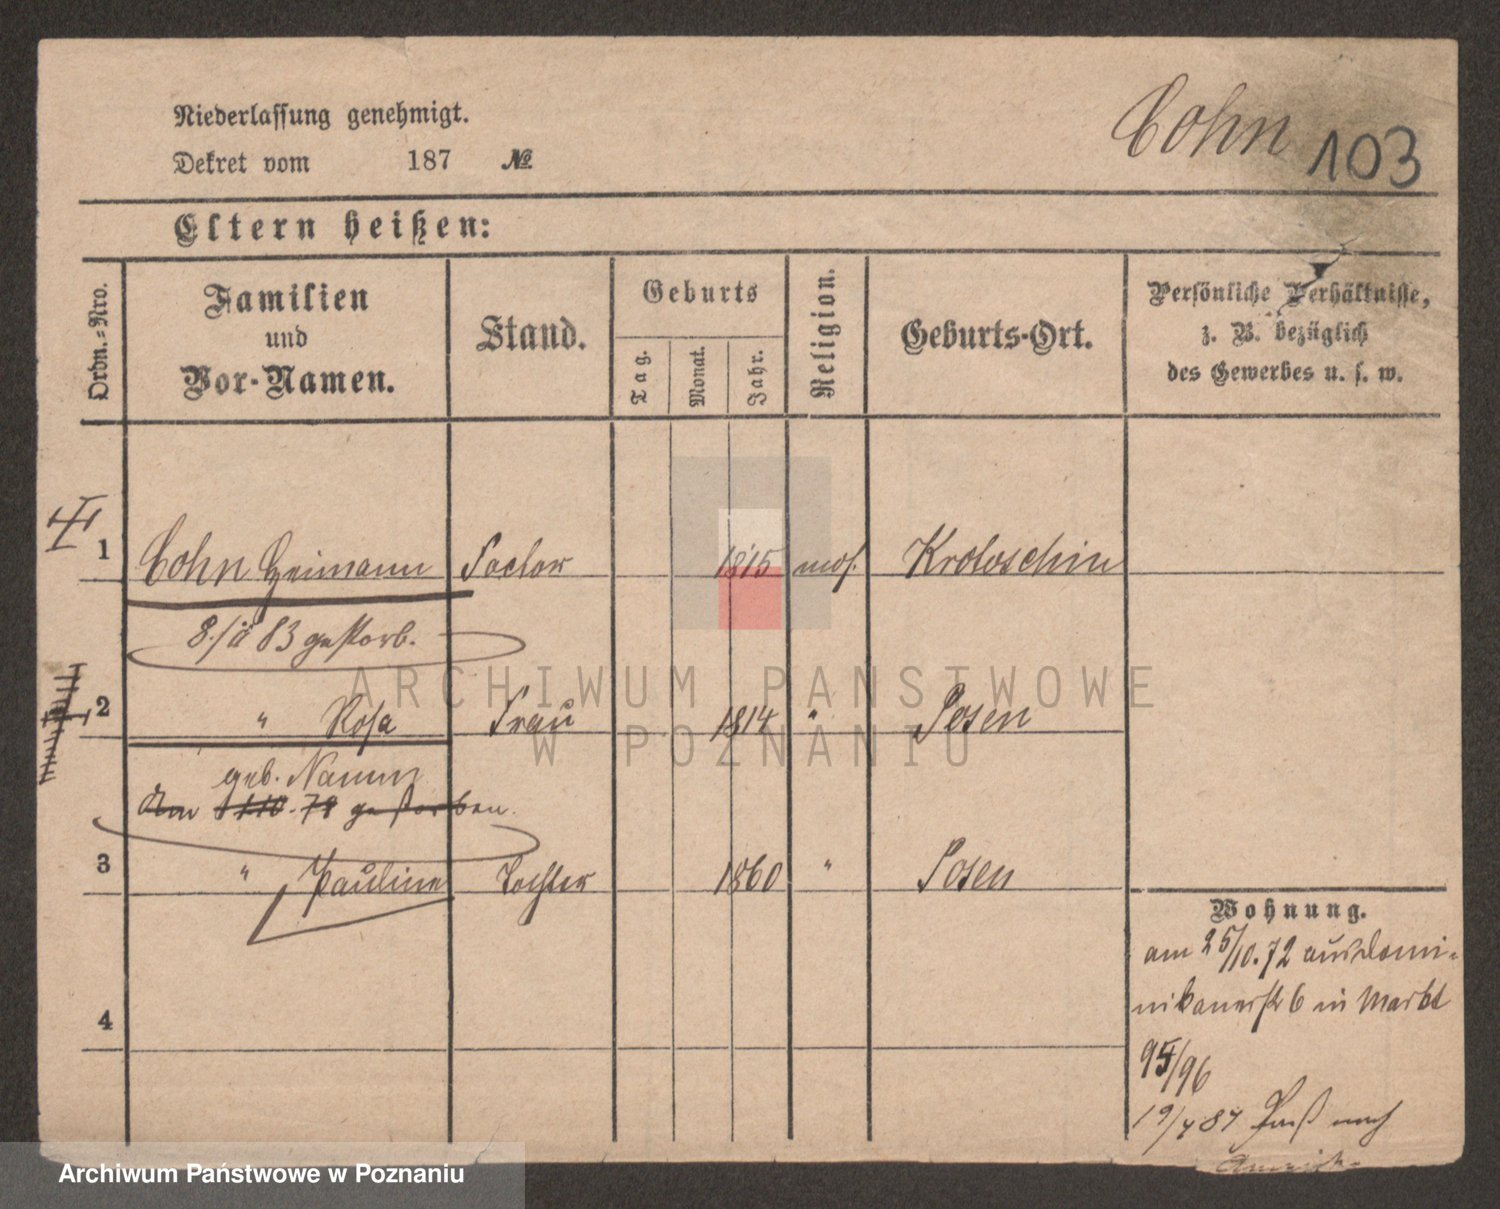 Niederlassung genehmigt.
Cohn 103
Dekret vom 187 №
Eltern heißen:
Ordn.-Nro.
Familien und Vor-Namen.
Stand.
Geburts
Tag.
Monat.
Jahr.
Religion.
Geburts-Ort.
Persönliche Verhältnisse,
z. B. bezüglich
des Gewerbes u. s. w.
1 Cohn Heimann 1815 mos. Krotoschin
83 gestorb.
2 " Rosa Frau 1814 " Posen
geb.
Am 78 gestorben.
3 " Pauline Tochter 1860 " Posen
4
Wohnung.
am 25/10.72 aus Domi-
nikanerstr 6 in Markt
95/96
19/4 87 Paß nach
Amerika
ARCHIWUM PAŃSTWOWE
W POZNANIU
Archiwum Państwowe w Poznaniu